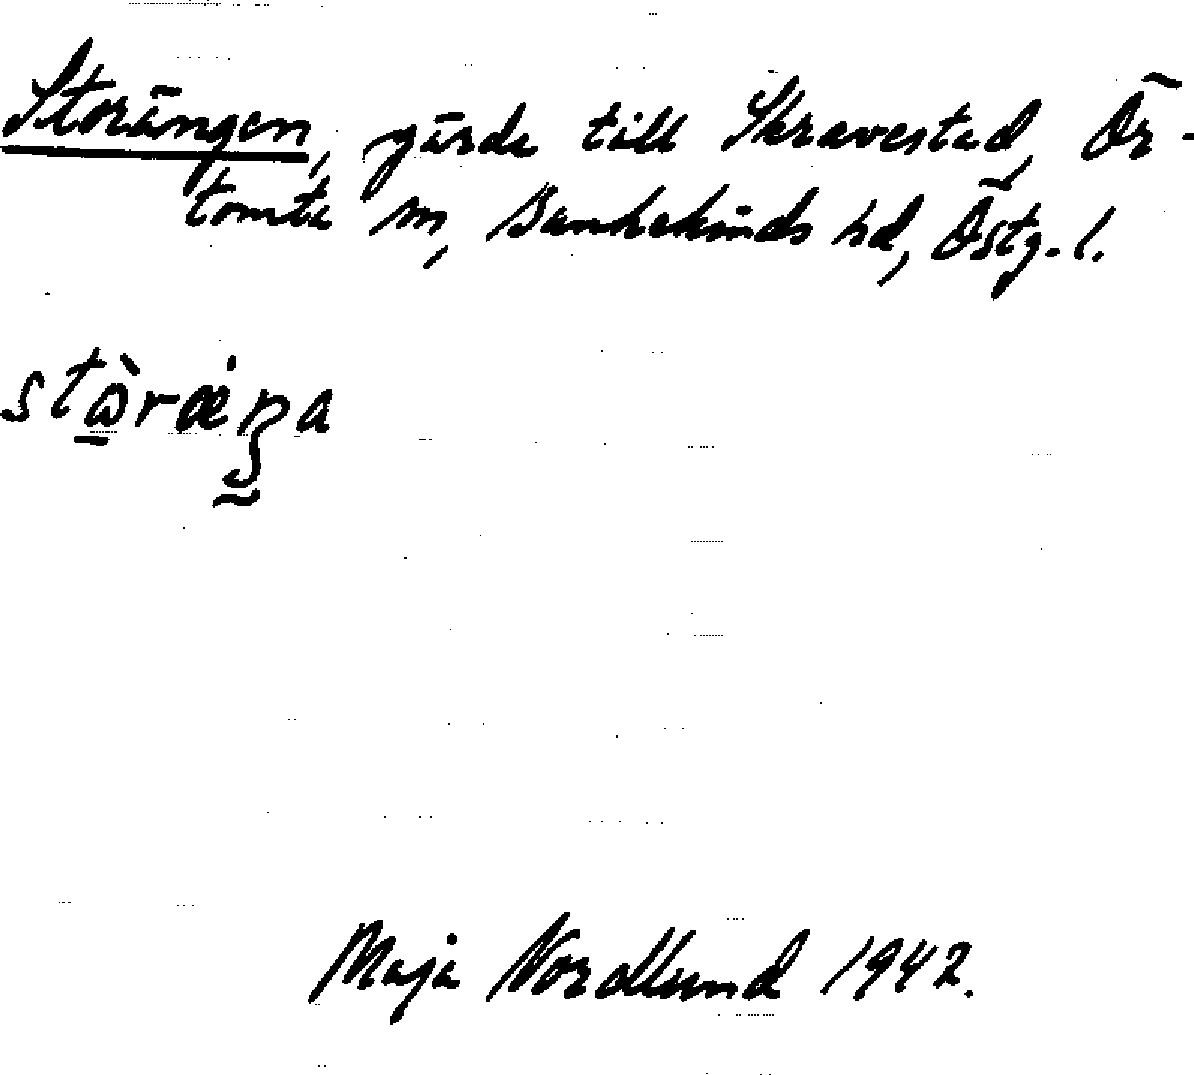 Storängen, gärde till Skravestad, Ör-
tomta sn, Bankekinds hd, Östg. l.
stὼræŋa
Maja Nordlund 1942.